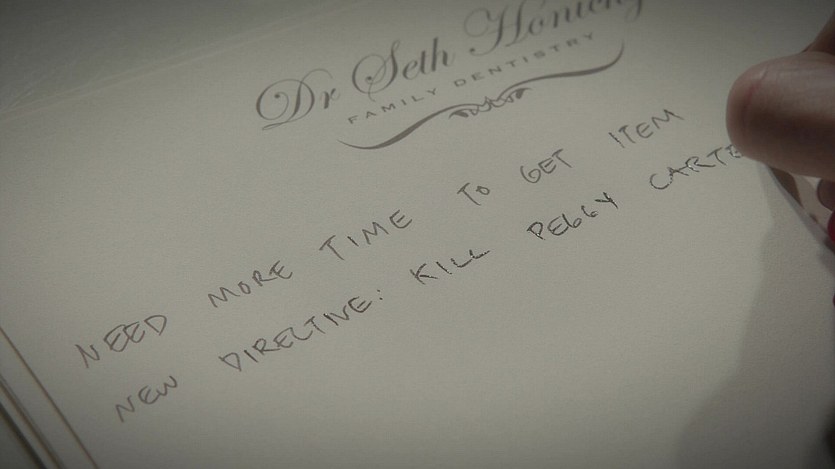 Dr Seth
FAMILY DENTISTRY
NEED MORE TIME TO GET ITEM
NEW DIRECTIVE: KILL PEGGY